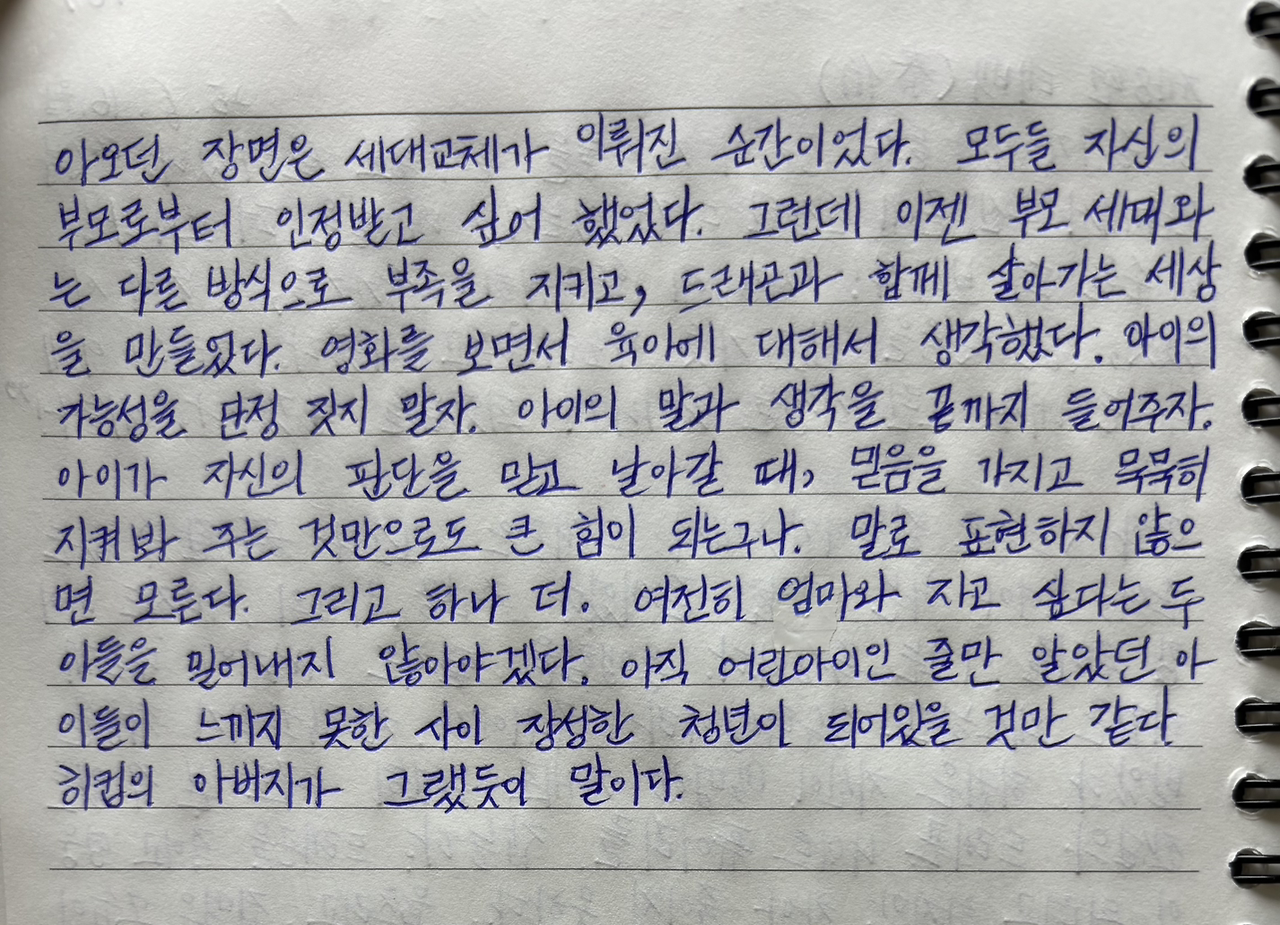 아오던 장면은 세대교체가 이뤄진 순간이었다. 모두들 자신의
부모로부터 인정받고 싶어 했었다. 그런데 이젠 부모 세대와
는 다른 방식으로 부족을 지키고, 드래곤과 함께 살아가는 세상
을 만들었다. 영화를 보면서 육아에 대해서 생각했다. 아이의
가능성을 단정 짓지 말자. 아이의 말과 생각을 끝까지 들어주자.
아이가 자신의 판단을 믿고 날아갈 때, 믿음을 가지고 묵묵히
지켜봐 주는 것만으로도 큰 힘이 되는구나. 말로 표현하지 않으
면 모른다. 그리고 하나 더. 여전히 엄마와 자고 싶다는 두
아들을 밀어내지 않아야겠다. 아직 어린아이인 줄만 알았던 아
이들이 느끼지 못한 사이 장성한 청년이 되어있을 것만 같다
히컵의 아버지가 그랬듯이 말이다.